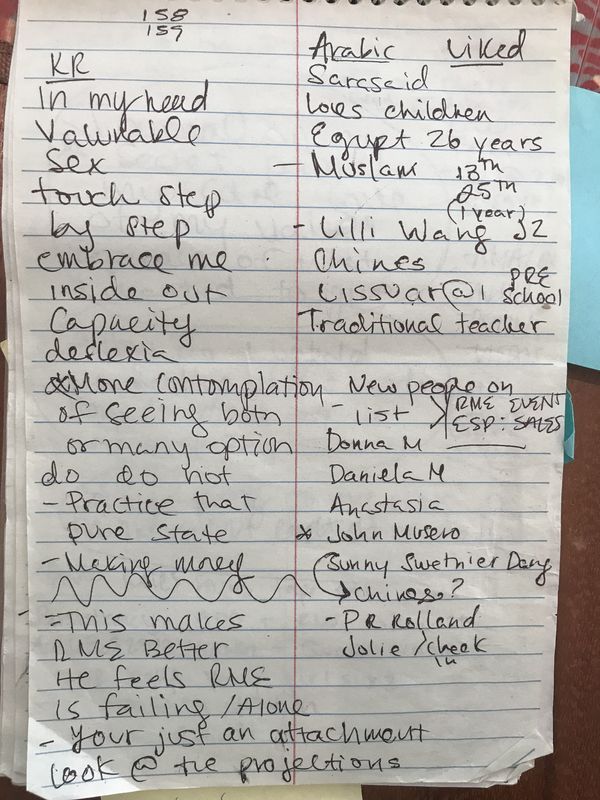 158
159
KR
In my head
Valurable
Sex
touch step
by step
embrace me
inside out
Capacity
deslexia
More Contomplation
of seeing both
or many option
do do not
- Practice that
pure state
- Making money
- This makes
RME Better
He feels RME
is failing / Alone
- Your just an attachment
look @ the projections
Arabic Liked
Sarasaid
loves children
Egypt 26 years
- Muslam 18th
25th
(1 year)
- Lilli Wang J2
Chines
PRE
School
Traditional teacher
New people on
- list
RME EVENT
ESP: SALES
Donna M
Daniela M
Anastasia
* John Musero
Sunny Swetnier Dang
Chines?
- PR Rolland
Jolie / check
in